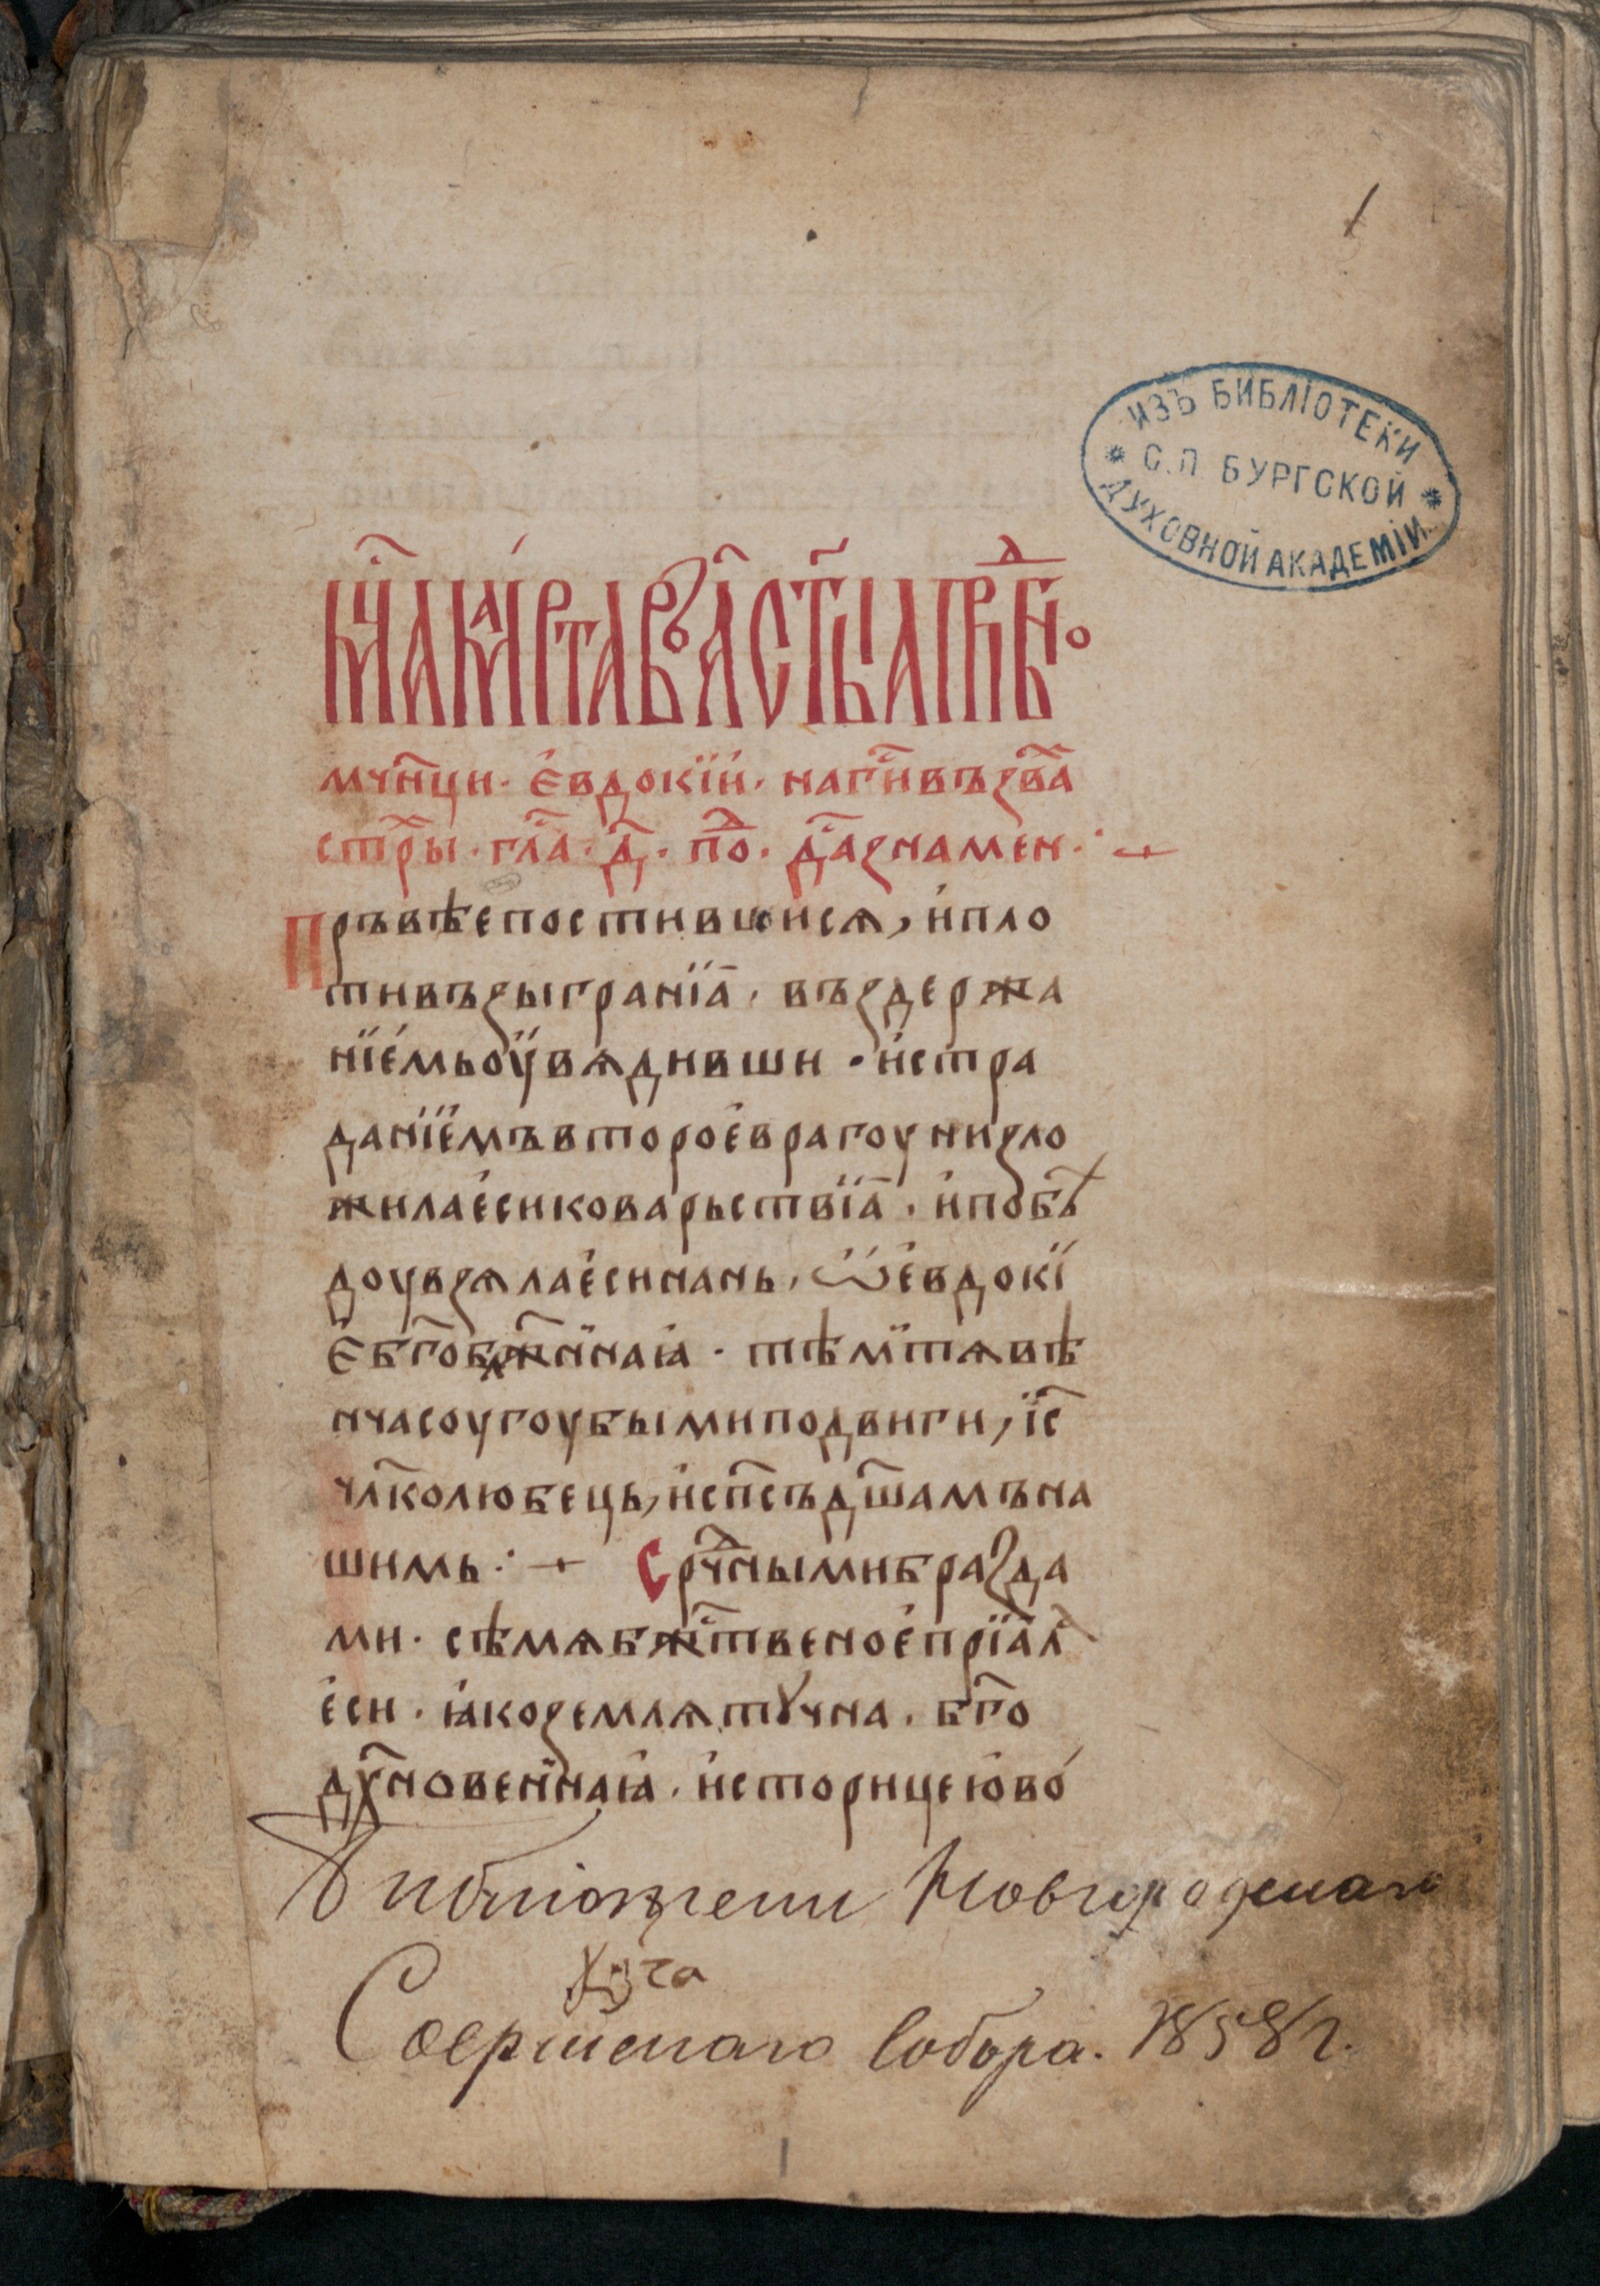 1
ИЗЪ БИБЛІОТЕКИ
С.П БУРГСКОЙ
ДУХОВНОЙ АКАДЕМІИ
мⷭ҇ца марта въ а҃ ст҃ыѧ прпⷣбно
мч҃нци · є҆вдокїи · на гⷭ҇и въꙁва
стⷯры · глⷭ҇а · д҃ · поⷣ · дⷭ҇а ꙁнамен :·
Пръвѣе постившисѧ, и҆ пло
ти въꙁыгранїа҆ · въꙁдержа
нїе҆мь оу҆вѧдивши · и҆ стра
данїе҆мъ второе҆ врагоу ниꙁло
жила е҆си коварьствїа҆ · и҆ побѣ
доу вꙁѧла е҆си нань, ѽ є҆вдокї
є҆ бг҃облж҃еннаꙗ · тѣмⷤ тѧ вѣ
нча соугоубыми подвиги, і҆с҃
чл҃колюбець, и҆ сп҃съ дш҃амъ на
шимь : Срⷣчными браꙁда
ми · сѣмѧ бжⷭ҇твеное҆ прїа҆лⷶ
е҆си · ꙗко ꙁемлѧ тꙋчна · бг҃о
дꙋхновеннаꙗ · и҆ сторицею во
Библіотеки Новгородскаго
Софійскаго собора. 1858 г.